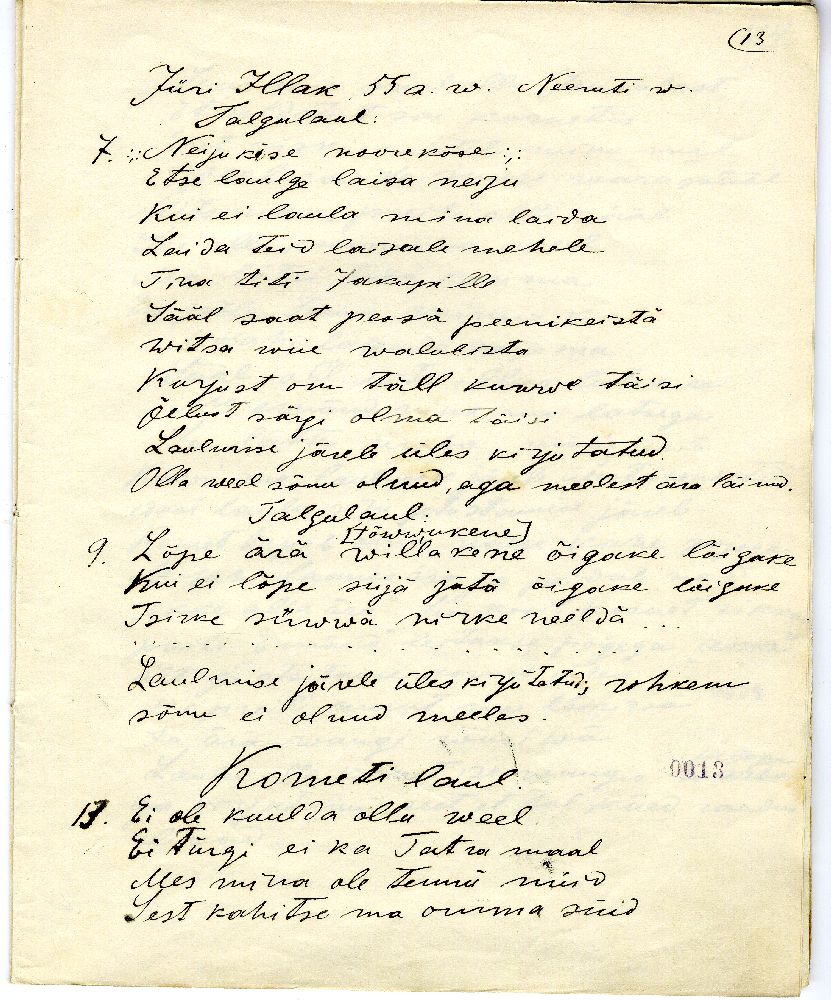 (13
Jüri Illak 55 a. w. Neeruti w.
Talgulaul:
7. :,: Neijukise noorekõse :,:
Etse laulge laisa neiju
Kui ei laula mina laida
Laida teid laisale mehele
Tina titi Jakapille
Sääl saat pessä peenikeistä
witsa wiie walulista
Kurjust om täll kuurwe täisi
Õelust särgi olma täisi
Laulmise järele üles kirjutatud.
Olla weel sõnu olnud, aga meelest ära läinud.
Talgulaul:
[tõwwukene]
9. Lõpe ärä willakene õigake läigake
Kui ei lõpe siijä jätä õigake läigake
Tsirke süwwä nirke neeldä ...
. . . . . . . . . . . .
Laulmise järele üles kirjutatud; rohkem
sõnu ei olnud meeles.
Kometi laul.
0013
13. Ei ole kuulda ollu weel
Ei Türgi ei ka Tatra maal
Mes mina ole tennü nüüd
Sest kahitse ma omma süüd